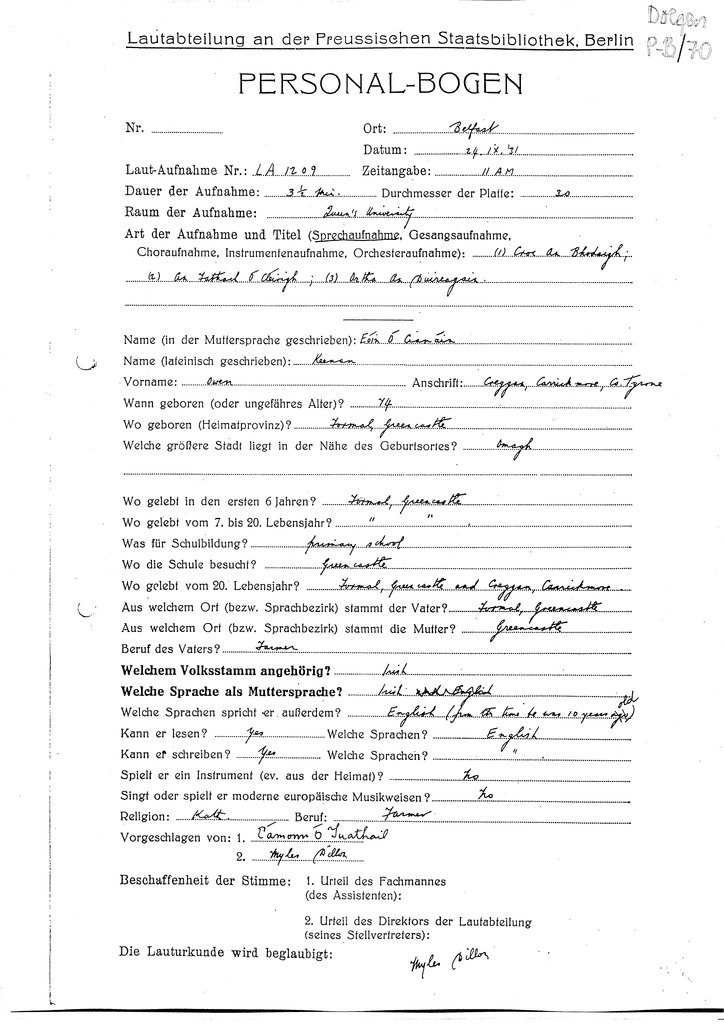 Doegen
P-B/70
Lautabteilung an der Preussischen Staatsbibliothek, Berlin
PERSONAL-BOGEN
Nr.
Ort: Belfast
Datum: 24.IX.'31
Laut-Aufnahme Nr.: LA 1209 Zeitangabe: 11 AM
Dauer der Aufnahme: 3½ Min. Durchmesser der Platte: 30
Raum der Aufnahme: Queen's University
Art der Aufnahme und Titel (Sprechaufnahme, Gesangsaufnahme,
Choraufnahme, Instrumentenaufnahme, Orchesteraufnahme): (1) Croc an Bhodaigh;
(2) An Fathach Ó Cléirigh; (3) Ortha an
Name (in der Muttersprache geschrieben): Eóin Ó Cianáin
Name (lateinisch geschrieben): Keenan
Vorname: Owen Anschrift: Creggan, Carrickmore, Co. Tyrone
Wann geboren (oder ungefähres Alter)? 74
Wo geboren (Heimatprovinz)? Formal, Greencastle
Welche größere Stadt liegt in der Nähe des Geburtsortes? Omagh
Wo gelebt in den ersten 6 Jahren? Formal, Greencastle
Wo gelebt vom 7. bis 20. Lebensjahr? " " .
Was für Schulbildung? primary school
Wo die Schule besucht? Greencastle
Wo gelebt vom 20. Lebensjahr? Formal, Greencastle and Creggan, Carrickmore
Aus welchem Ort (bezw. Sprachbezirk) stammt der Vater? Formal, Greencastle
Aus welchem Ort (bezw. Sprachbezirk) stammt die Mutter? Greencastle
Beruf des Vaters? Farmer
Welchem Volksstamm angehörig? Irish
Welche Sprache als Muttersprache? Irish and English
Welche Sprachen spricht er außerdem? English (from the time he was 10 years old)
Kann er lesen? Yes Welche Sprachen? English
Kann er schreiben? Yes Welche Sprachen? "
Spielt er ein Instrument (ev. aus der Heimat)? No
Singt oder spielt er moderne europäische Musikweisen? No
Religion: Kath Beruf: Farmer
Vorgeschlagen von: 1. Éamonn Ó Tuathail
2. Myles Dillon
Beschaffenheit der Stimme: 1. Urteil des Fachmannes
(des Assistenten):
2. Urteil des Direktors der Lautabteilung
(seines Stellvertreters):
Die Lauturkunde wird beglaubigt: Myles Dillon